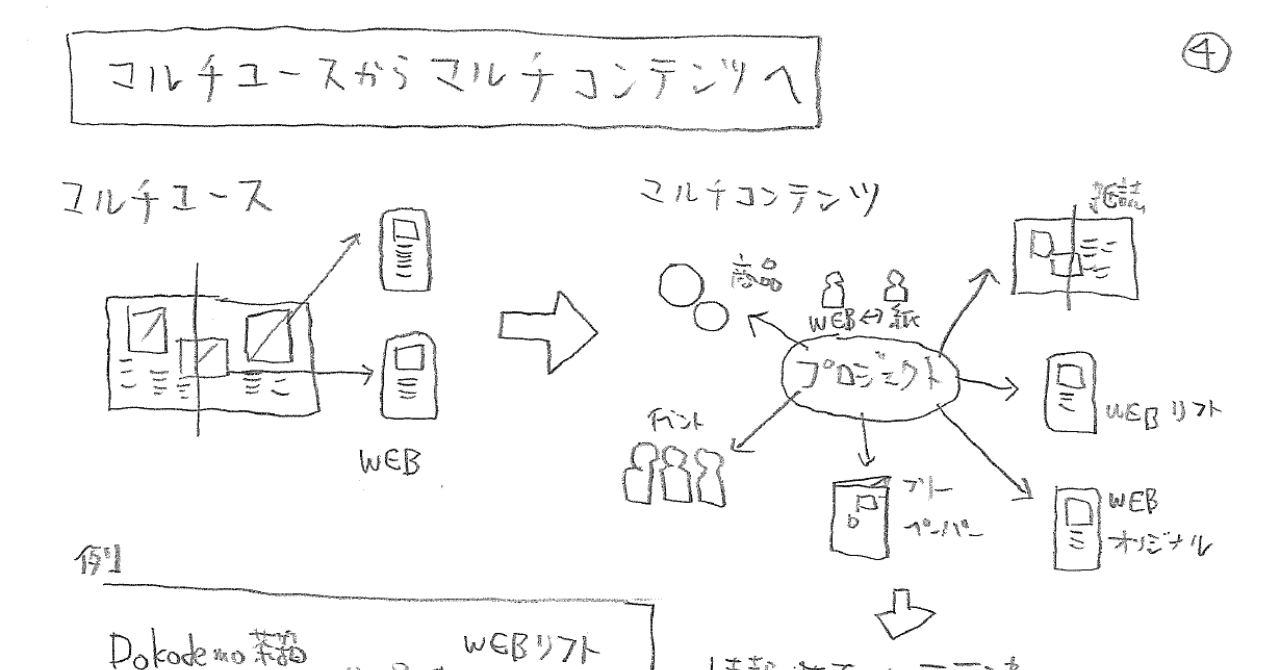 ④
マルチユースからマルチコンテンツへ
マルチユース
WEB
マルチコンテンツ
商品
WEB↔紙
プロジェクト
雑誌
WEBリフト
WEB
オリジナル
フリー
ペーパー
イベント
例
Dokodemo茶箱
WEBリフト